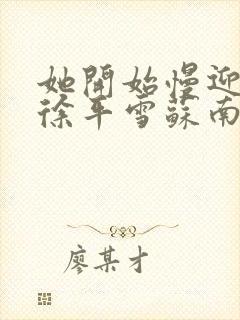 她開始慢迎
徐平雪蘇南
廖某才